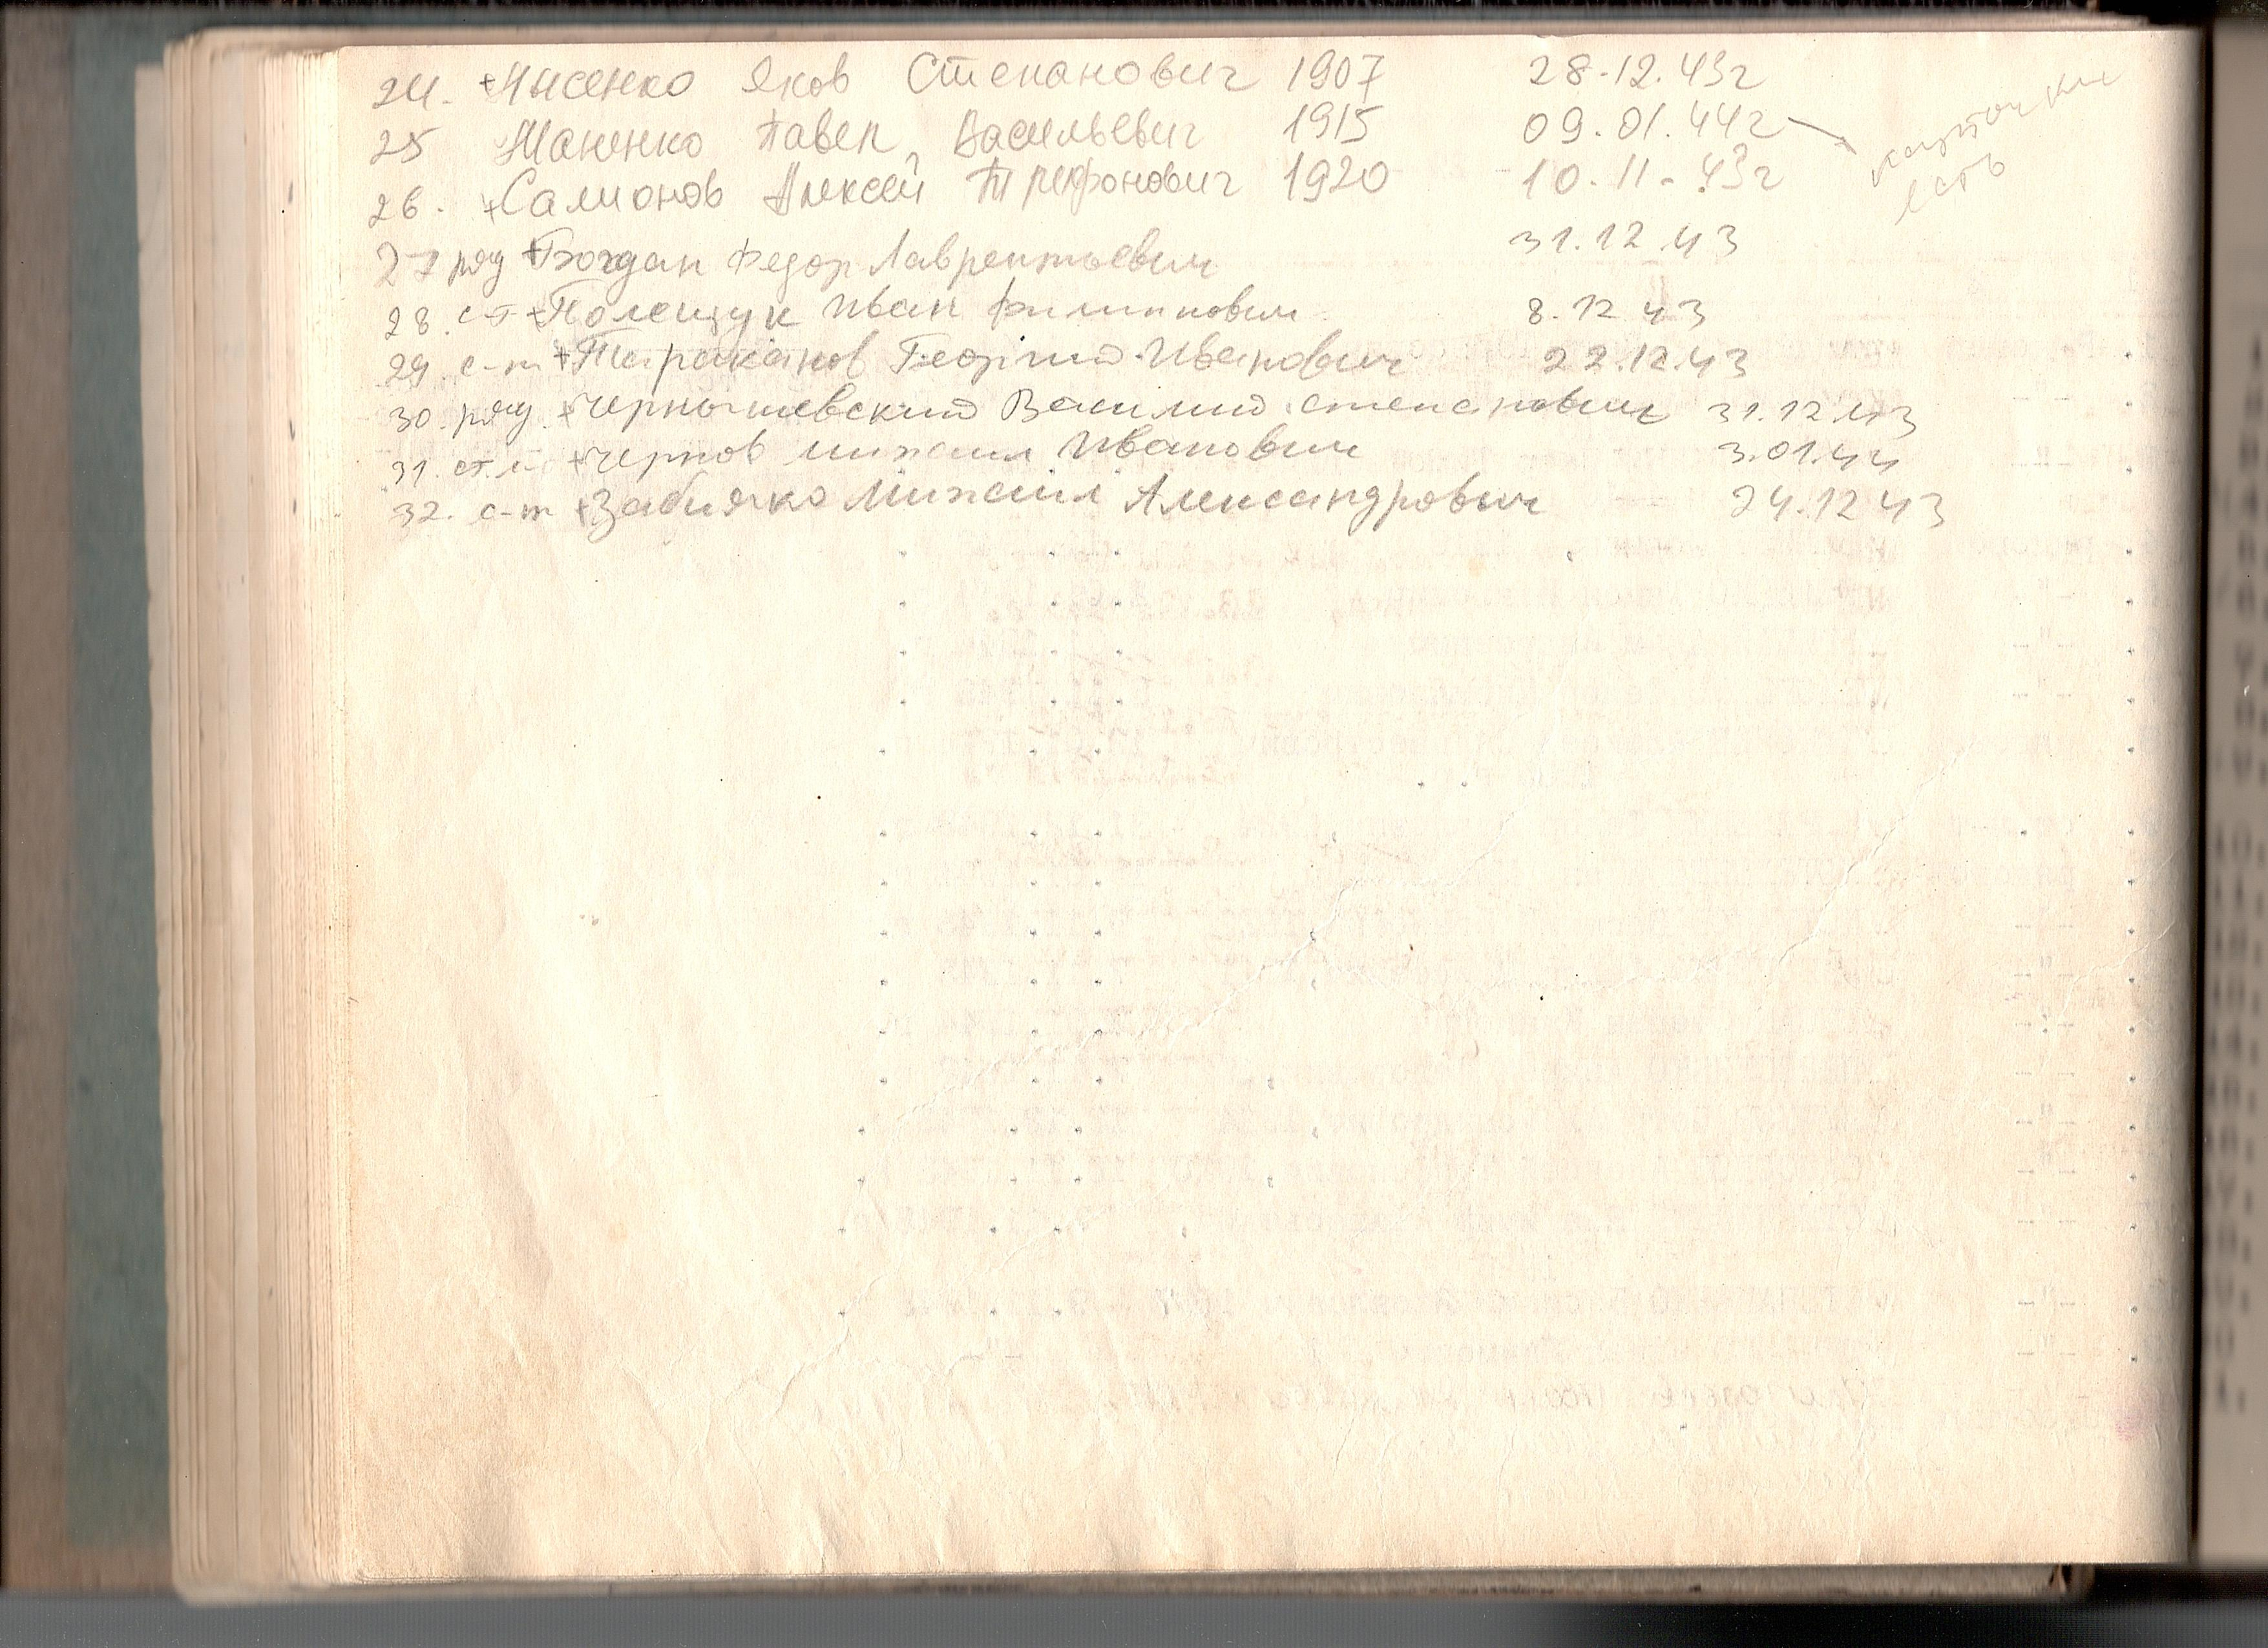 24. +Лысенко Яков Степанович 1907 28.12.43г
25 Жаненко Павел Васильевич 1915 09.01.44г
26. +Салионов Алексей Трефонович 1920 10.11.43г
карточки
есть
27 ряд +Богдан Федор Лаврентьевич 31.12.43
28. с-т +Полещук Иван Филиппович 8.12 43
29. с-т +Тараканов Георгий Иванович 22.12.43
30. ряд. +Чернышевский Василий Степанович 31.12 43
31. +Чернов Михаил Иванович 3.01.44
32. с-т +Забияко Михаил Александрович 24.12 43